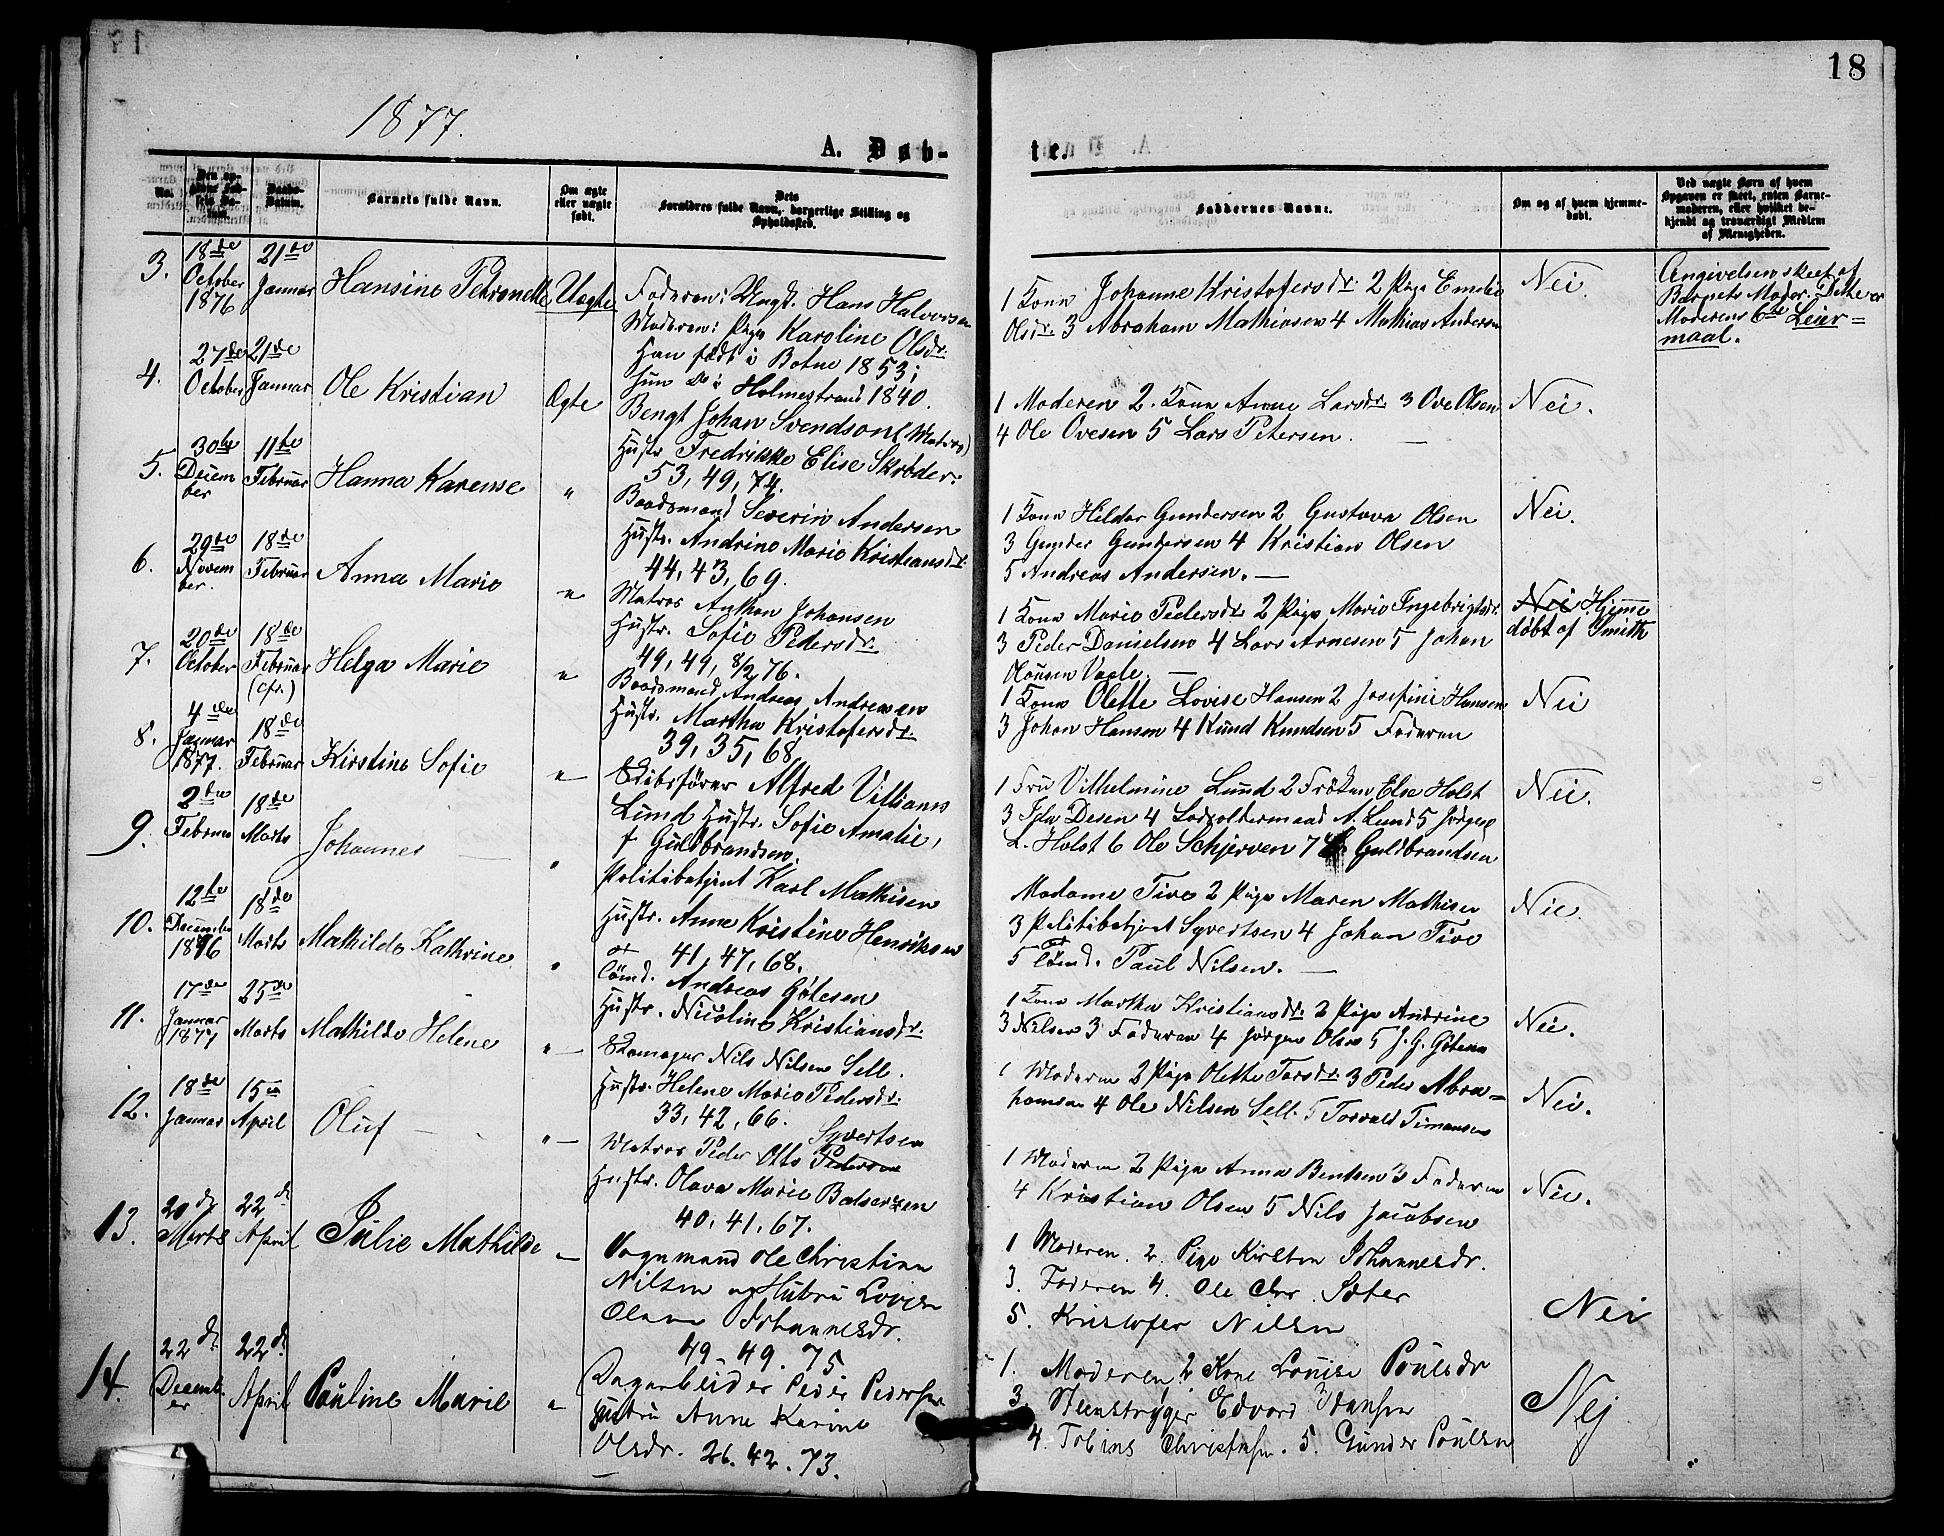 18
1877.
A. Døb-
te.
No.
Den op-
givne Fød-
sels Da-
tum.
Daabs-
Datum.
Barnets fulde Navn.
Om ægte
eller uægte
født.
Dets
Forældres fulde Navn, borgerlige Stilling og
Opholdssted.
Faddernes Navne.
Om og af hvem hjemme-
døbt.
Ved uægte Børn af hvem
Opgaven er skeet, enten Barne-
moderen, eller hvilket be-
kjendt og troværdigt Medlem
af Menigheden.
3.
18de
October
1876
21de
Januar
Hansine Petronelle
Uægte
Faderen: Ungk. Hans Halvorsen
Moderen: Pige Karoline Olsdr.
Han født i Botne 1853;
hun do i Holmestrand 1840.
1 Kone Johanne Kristofersdr. 2 Pige Emelie
Olsdr. 3 Abraham Mathiasen 4 Mathias Andersen
Nei.
Angivelsen skeet af
Barnets Moder. Dette er
Moderens 6te Leier=
maal.
4.
27de
October
21de
Januar
Ole Kristian
Ægte
Bengt Johan Svendsen (Matros)
Hustr. Fredrikke Elise Skrøder.
53, 49, 74.
1 Moderen 2. Kone Anne Larsdr. 3 Ove Olsen
4 Ole Ovesen 5 Lars Petersen.
Nei.
5.
30te
Decem
ber
11te
Februar
Hanna Karense
"
Baadsmand Severin Andersen
Hustr. Andrine Marie Kristiansdr.
44, 43, 69.
1 Kone Hilda Gundersen 2 Gustava Olsen
3 Gunder Gundersen 4 Kristian Olsen
5 Andreas Andersen.
Nei.
6.
29de
Novem
ber.
18de
Februar
Anna Marie
"
Matros Anthon Johansen
Hustr. Sofie Pedersdr.
49, 49, 8/2 76.
1 Kone Marie Pedersdr. 2 Pige Marie Ingebrigtsdr.
3 Peder Danielsen 4 Lars Arnesen 5 Johan
Olausen Vaale.
Nei Hjeme
døbt af Smith
7.
20de
October
18de
Februar
(cfr.)
Helga Marie
"
Baadsmand Andreas Andresen
Hustr. Martha Kristofersdr.
39, 35, 68.
1 Kone Olette Lovise Hansen 2 Josefine Hansen
3 Johan Hansen 4 Knud Knudsen 5 Faderen
Nei
8.
4de
Januar
1877.
18de
Februar
Kirstine Sofie
"
Skibsfører Alfred Villiams
Lund Hustr. Sofie Amalie,
f Guldbrandsen.
1 Fru Vilhelmine Lund 2 Frøken Else Holst
3 Ida Desen 4 Lodsoldermand A. Lund 5 Jørgen
L. Holst 6 Ole Schjerven 7 Guldbrandsen
Nei.
9.
2den
Februar
18de
Marts
Johannes
"
Politibetjent Karl Mathisen
Hustr. Anne Kristine Henriksen
41, 47, 68.
Madame Tive 2 Pige Maren Mathisen
3 Politibetjent Syvertsen 4 Johan Tive
5 Tømd. Paul Nilsen.
Nei.
10.
12te
December
1876
18de
Marts
Mathilde Kathrine
"
Tømd. Andreas Gøtesen
Hustr. Nicoline Kristiansdr.
1 Kone Martha Kristiansdr. 2 Pige Andrine
Nilsen 3 Faderen 4 Jørgen Olsen 5 J. G. Gøtesen
Nei.
11.
17de
Januar
1877
25de
Marts
Mathilde Helene
"
Skomager Nils Nilsen Sell.
Hustr. Helene Marie Pedersdr.
33, 42, 66.
1 Moderen 2 Pige Olette Torsdr. 3 Peder Abra=
hamsen 4 Ole Nilsen Sell. 5 Torvald Timansen
Nei.
12.
18de
Januar
15de
April
Oluf
"
Matros Peder Otto Pedersen Syvertsen
Hustr. Olava Marie Baltzersen
40, 41, 67.
1 Moderen 2 Pige Anna Bentsen 3 Faderen
4 Kristian Olsen 5 Nils Jacobsen
Nei.
13.
20de
Marts
22de
April
Julie Mathilde
Vognmand Ole Christian
Nilsen og Hustru Lovise
Olava Johannesdr.
49. 49. 75
1 Moderen. 2. Pige Kirsten Johannesdr.
3. Faderen 4. Ole Chr. Sæter
5. Kristofer Nilsen
Nei
14.
22de
Decemb
er
22de.
April
Pauline Marie
"
Dagarbeider Peder Pedersen
Hustru Anne Karine
Olsdr. 26. 42. 73.
1. Moderen 2 Kone Louise Poulsdr
3. Steenstryger Edvard Hansen
4. Tobias Christensen. 5. Gunder Poulsen
Nej